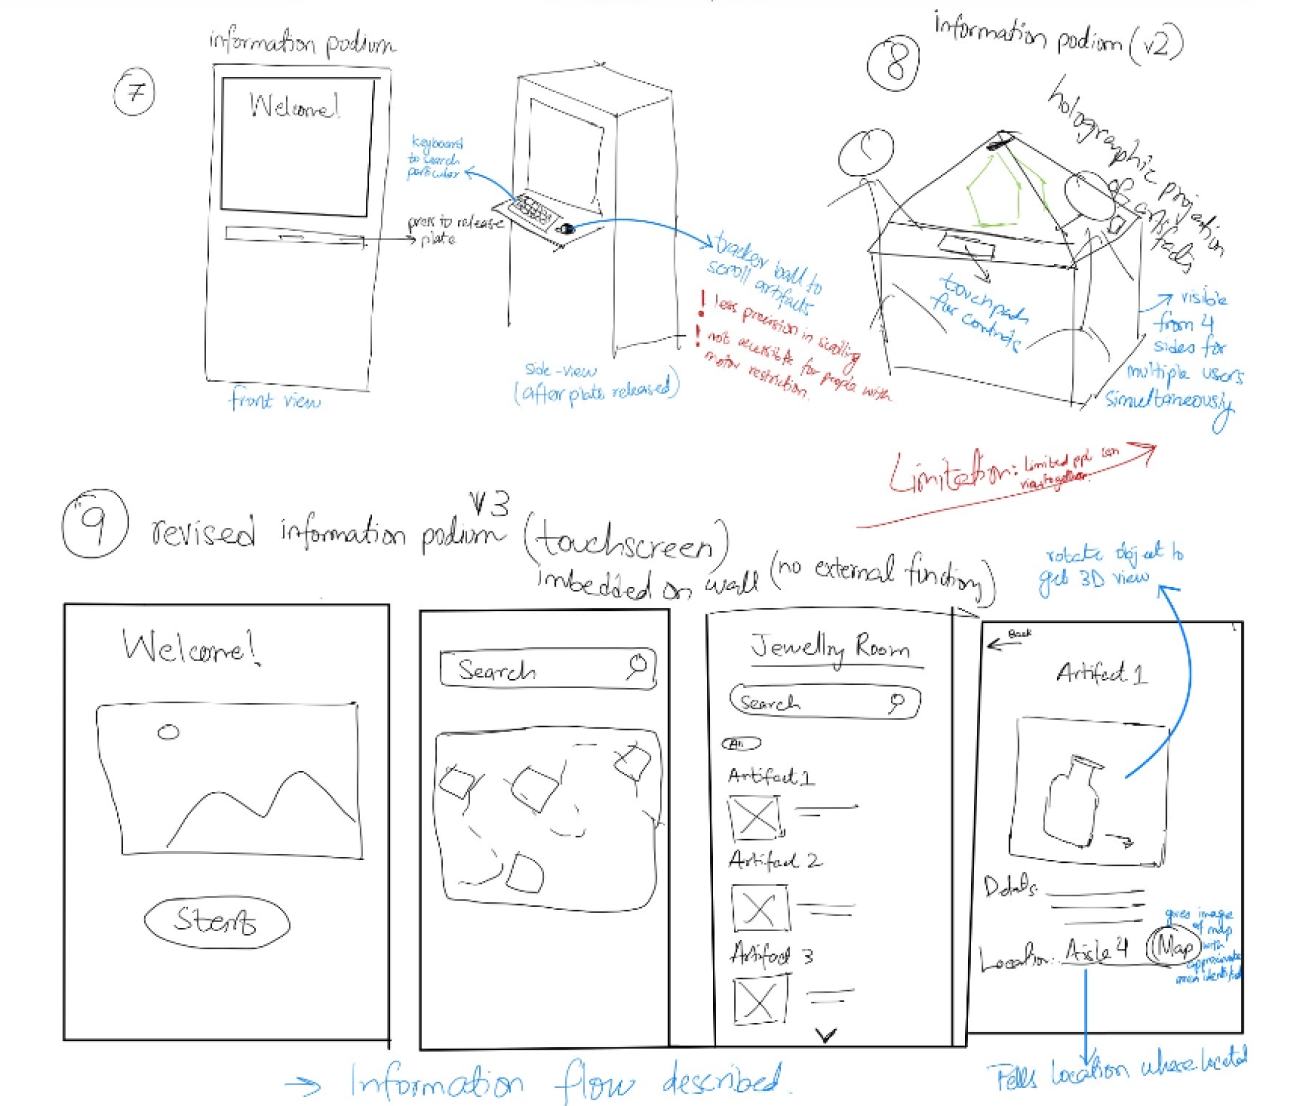 7
information podium
Welcome!
press to release
plate
front view
keyboard
to search
particular
tracker ball to
scroll artifacts
! less precision in scrolling
! not accessible for people with
motor restriction.
side-view
(after plate released)
8
information podium (v2)
holographic projection
of artifacts
touchpad
for controls
visible
from 4
sides for
multiple users
simultaneously
Limitation: Limited ppl can
view together.
9
revised information podium v3 (touchscreen)
imbedded on wall (no external function)
Welcome!
Start
Search
Jewellry Room
Search
All
Artifact 1
Artifact 2
Artifact 3
rotate object to
get 3D view
Back
Artifact 1
Details:
Location: Aisle 4
Map
gives image
of map
with
approximate
area identified
Tells location where located
→ Information flow described.